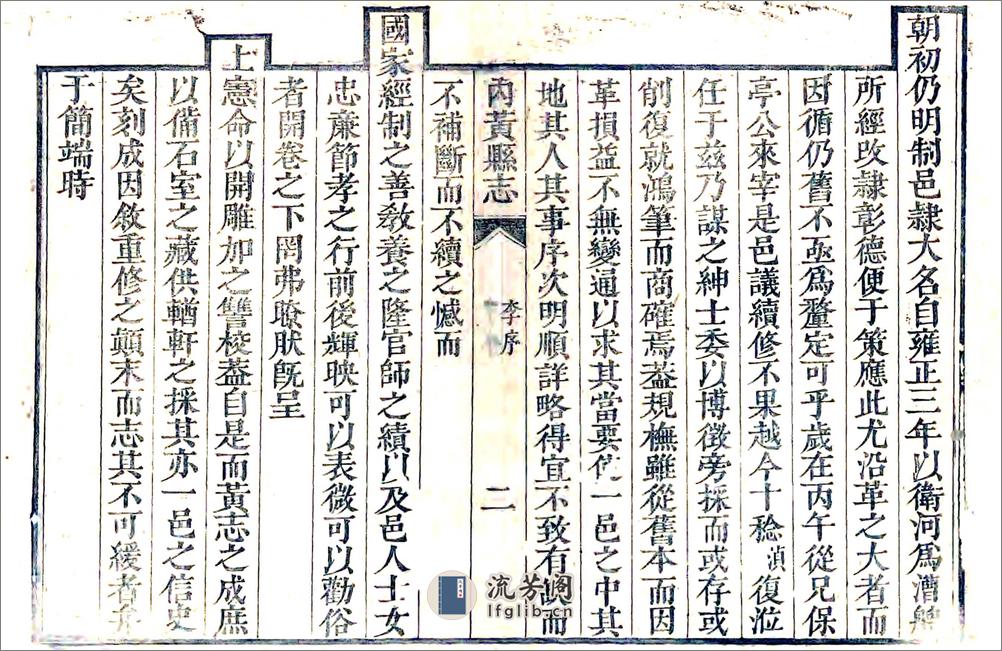 朝初仍明制邑隸大名自雍正三年以衛河爲漕艘
所經改隸彰德便于策應此尤沿革之大者而
因循仍舊不亟爲釐定可乎歲在丙午從兄保
亭公來宰是邑議續修不果越今十稔滇復涖
任于茲乃謀之紳士委以博徵旁採而或存或
削復就鴻筆而商確焉葢規橅雖從舊本而因
革損益不無變通以求其當要使一邑之中其
地其人其事序次明順詳略得宜不致有缺而
內黃縣志
李序
二
不補斷而不續之憾而
國家經制之善教養之隆官師之績以及邑人士女
忠亷節孝之行前後輝映可以表微可以勸俗
者開卷之下罔弗瞭肰旣呈
上憲命以開雕加之讐校葢自是而黃志之成庶
以備石室之藏供輶軒之採其亦一邑之信史
矣刻成因敘重修之顛末而志其不可緩者
于簡端時
流芳阁
lfglib.cn